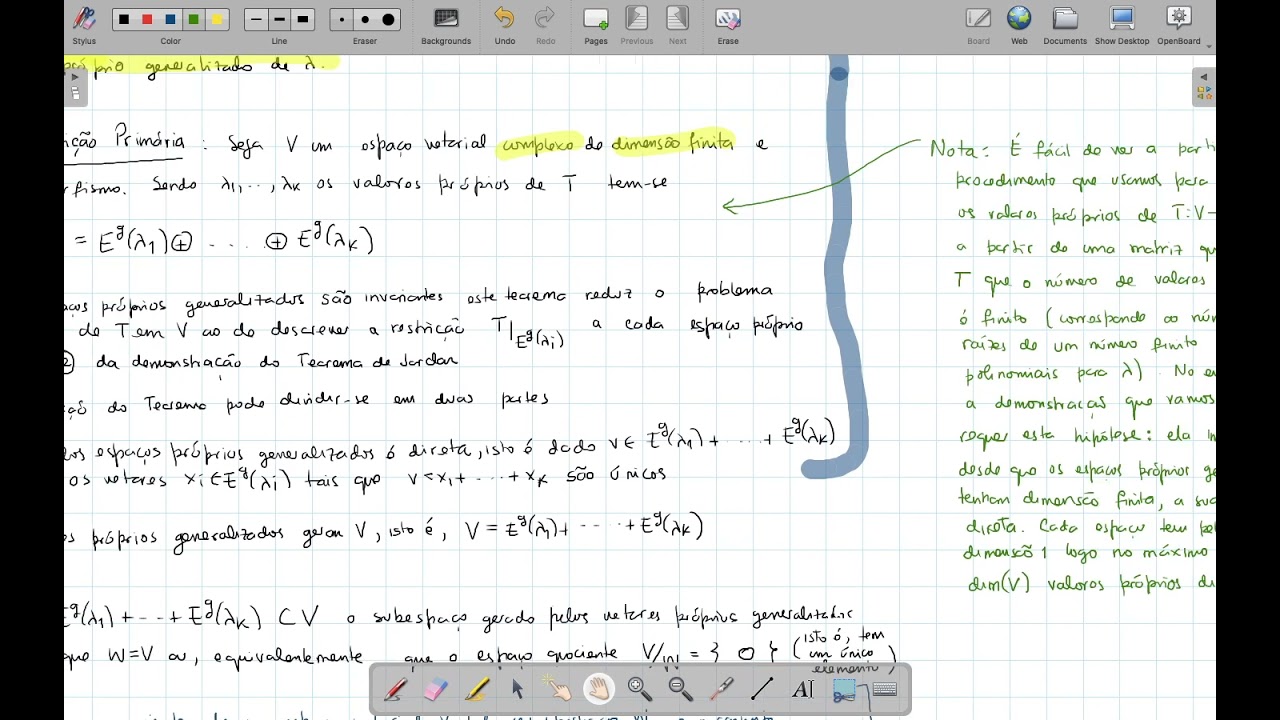 Stylus Color Line Eraser Backgrounds Undo Redo Pages Previous Next Erase Board Web Documents Show Desktop OpenBoard
próprio generalizado de λ.
ição Primária : Seja V um espaço vetorial complexo de dimensão finita e
rfismo. Sendo λ1, .., λk os valores próprios de T tem-se
= E^g(λ1) ⊕ .... ⊕ E^g(λk)
aços próprios generalizados são invariantes este teorema reduz o problema
de T em V ao de descrever a restrição T|E^g(λi) a cada espaço próprio
2) da demonstração do Teorema de Jordan
ção do Teorema pode dividir-se em duas partes
dos espaços próprios generalizados é direta, isto é dado v ∈ E^g(λ1) + .... + E^g(λk)
os vetores xi ∈ E^g(λi) tais que v = x1 + .... + xk são únicos
os próprios generalizados geram V, isto é, V = E^g(λ1) + .... + E^g(λk)
E^g(λ1) + ... + E^g(λk) ⊂ V o subespaço gerado pelos vetores próprios generalizados
que W=V ou, equivalentemente que o espaço quociente V/W = { 0 } (isto é, tem
um único
elemento)
Nota: É fácil de ver a parti
procedimento que usamos para
os valores próprios de T: V-
a partir de uma matriz qu
T que o número de valores
é finito (corresponde ao núm
raízes de um número finito
polinomiais para λ). No en
a demonstração que vamos
requer esta hipótese: ela
desde que os espaços próprios ge
tenham dimensão finita, a su
direta. Cada espaço tem pel
dimensão 1 logo no máximo
dim(V) valores próprios di